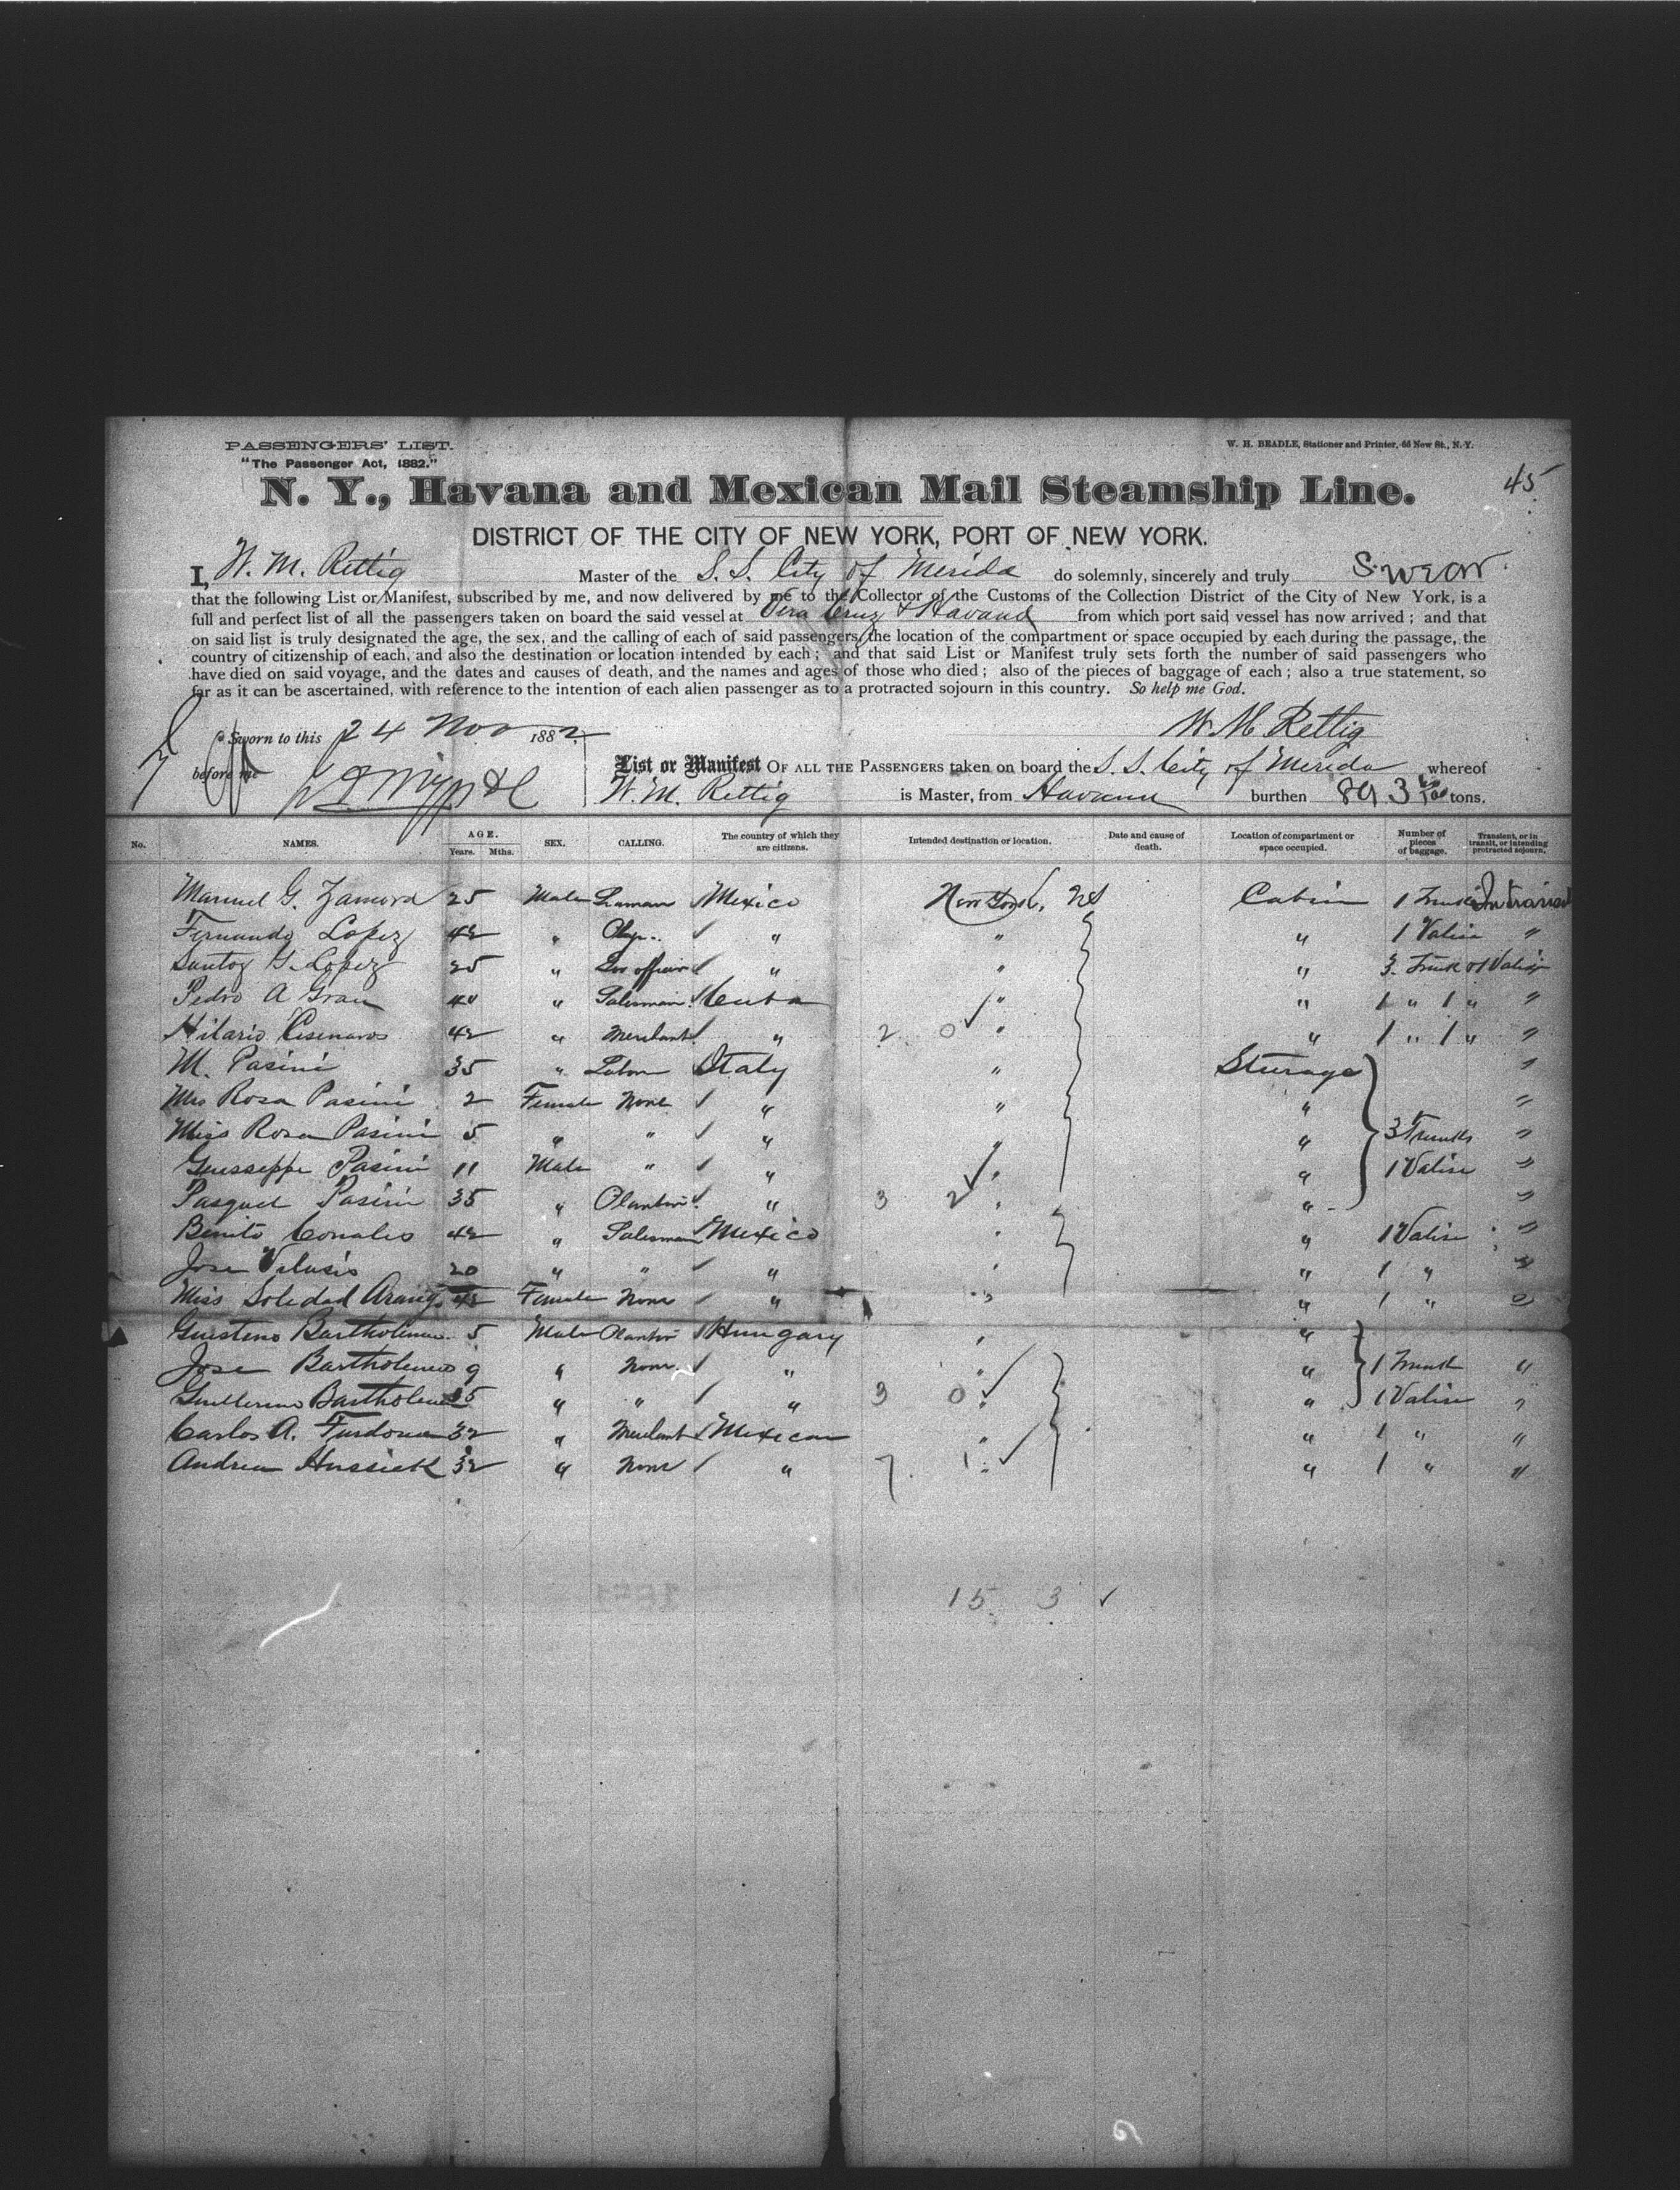 PASSENGERS' LIST.
"The Passenger Act, 1882."
W. H. BEADLE, Stationer and Printer, 66 New St., N. Y.
45
N. Y., Havana and Mexican Mail Steamship Line.
DISTRICT OF THE CITY OF NEW YORK, PORT OF NEW YORK.
I, W. M. Rettig Master of the S. S. City of Merida do solemnly, sincerely and truly swear
that the following List or Manifest, subscribed by me, and now delivered by me to the Collector of the Customs of the Collection District of the City of New York, is a
full and perfect list of all the passengers taken on board the said vessel at Vera Cruz & Havana from which port said vessel has now arrived; and that
on said list is truly designated the age, the sex, and the calling of each of said passengers, the location of the compartment or space occupied by each during the passage, the
country of citizenship of each, and also the destination or location intended by each; and that said List or Manifest truly sets forth the number of said passengers who
have died on said voyage, and the dates and causes of death, and the names and ages of those who died; also of the pieces of baggage of each; also a true statement, so
far as it can be ascertained, with reference to the intention of each alien passenger as to a protracted sojourn in this country. So help me God.
Sworn to this 24 Nov 1882
W. M. Rettig
before me
List or Manifest OF ALL THE PASSENGERS taken on board the S. S. City of Merida whereof
W. M. Rettig is Master, from Havana burthen 893 tons.
No. NAMES. AGE. Years. Mths. SEX. CALLING. The country of which they are citizens. Intended destination or location. Date and cause of death. Location of compartment or space occupied. Number of pieces of baggage. Transient, or in transit, or intending protracted sojourn.
Manuel G. Zamora 25 Male Mexico New York, US Cabin 1 Trunk In transit
Fernando Lopez 42 " " " " 1 Valise "
Santos G. Lopez 25 " officer " " " 3 Trunk & 1 Valise
Pedro A Grau 40 " Salesman Cuba " " 1 " 1 " "
Hilario Cisneros 42 " Merchant " 2 0 " " 1 " 1 " "
M. Pasini 35 " Labor Italy " Sturage "
Mrs Rosa Pasini 2 Female None " " " "
Miss Rosa Pasini 5 " " " " " 3 Trunks "
Guesseppe Pasini 11 Male " " " " 1 Valise "
Pasquel Pasini 35 " " 3 2 " " "
Benito 42 " Salesman Mexico " " 1 Valise "
Jose 20 " " " " " 1 " "
Miss Soledad 42 Female None " " " 1 " "
Bartholomeo 5 Male Hungary " "
Jose Bartholomeo 9 " None " " " 1 Trunk "
Guillermo Bartholomeo 35 " " " 3 0 " " 1 Valise "
Carlos A. 32 " Merchant Mexican " " 1 " "
Andrew Hussick 32 " None " 7 1 " " 1 " "
15 3